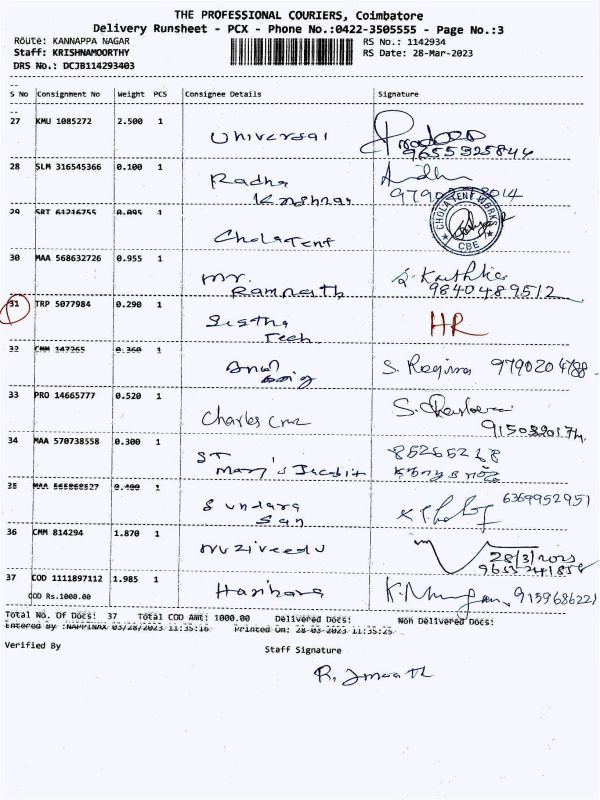 THE PROFESSIONAL COURIERS, Coimbatore
Delivery Runsheet - PCX - Phone No.:0422-3505555 - Page No.:3
Route: KANNAPPA NAGAR RS No.: 1142934
Staff: KRISHNAMOORTHY RS Date: 28-Mar-2023
DRS No.: DCJB114293403
S No Consignment No Weight PCS Consignee Details Signature
27 KMU 1085272 2.500 1
Universal Pradeep
9655325844
28 SLM 316545366 0.100 1
Radha
Krishnan
29 SRT 61216755 0.095 1
CholaTent CHOLA TENT WORKS CBE
30 MAA 568632726 0.955 1
Mr. S. Karthika
Ramnath 9840489512
31 TRP 5077984 0.290 1
Sistha HR
Tech
32 CMM 147265 0.360 1
S. Regina 9790204788
33 PRO 14665777 0.520 1
Charles Cruz
34 MAA 570738558 0.300 1
ST 85265268
Mary's
35 MAA 565868527 0.400 1
Sundara 6369952951
San
36 CMM 814294 1.870 1
Nuziveedu 28/3/2023
37 COD 1111897112 1.985 1
COD Rs.1000.00 Harihara K. Murugan 9159686221
Total No. Of Docs: 37 Total COD Amt: 1000.00 Delivered Docs: Non Delivered Docs:
Entered By :NAPPINAX 03/28/2023 11:35:16 Printed On: 28-03-2023 11:35:25
Verified By Staff Signature